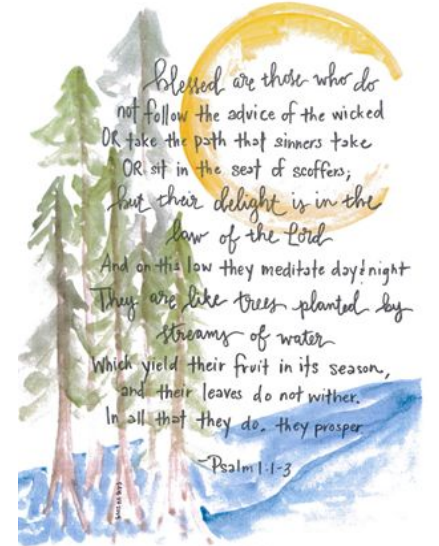 blessed are those who do
not follow the advice of the wicked
OR take the path that sinners take
OR sit in the seat of scoffers;
but their delight is in the
law of the Lord
And on this law they meditate day & night
They are like trees planted by
streams of water
Which yield their fruit in its season,
and their leaves do not wither.
In all that they do, they prosper
-Psalm 1:1-3